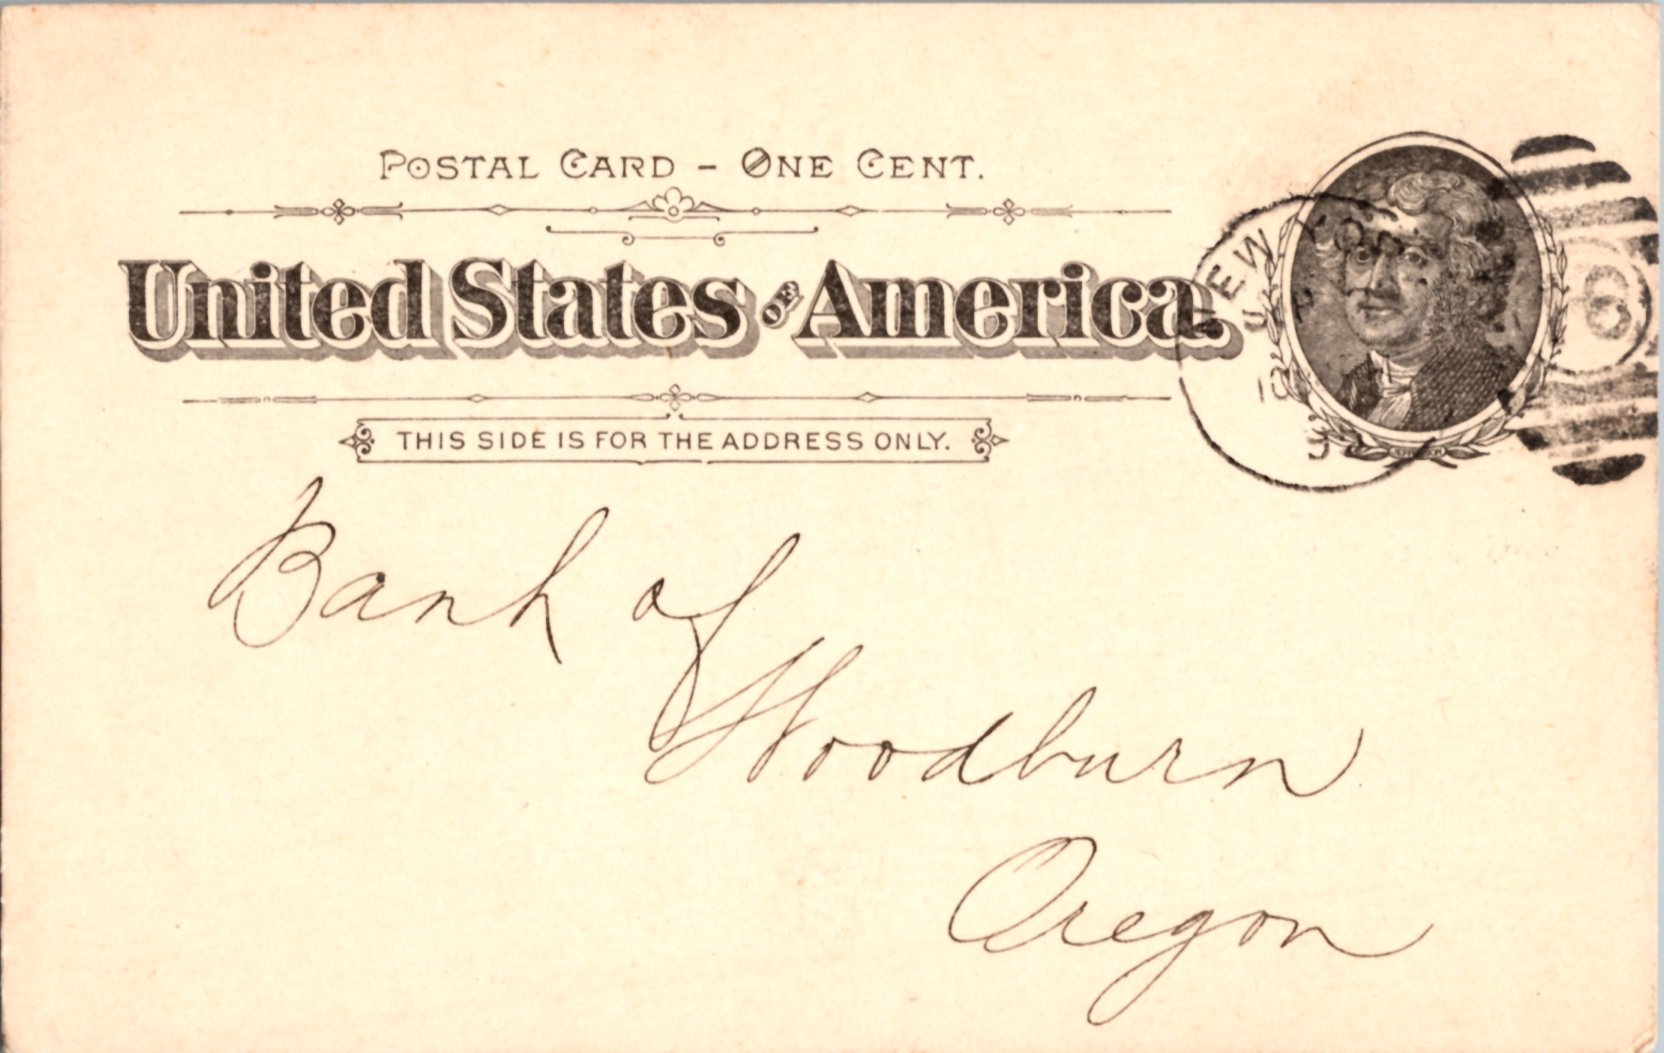 POSTAL CARD - ONE CENT.
United States OF America.
THIS SIDE IS FOR THE ADDRESS ONLY.
NEW YORK
6
Bank of
Woodburn
Oregon